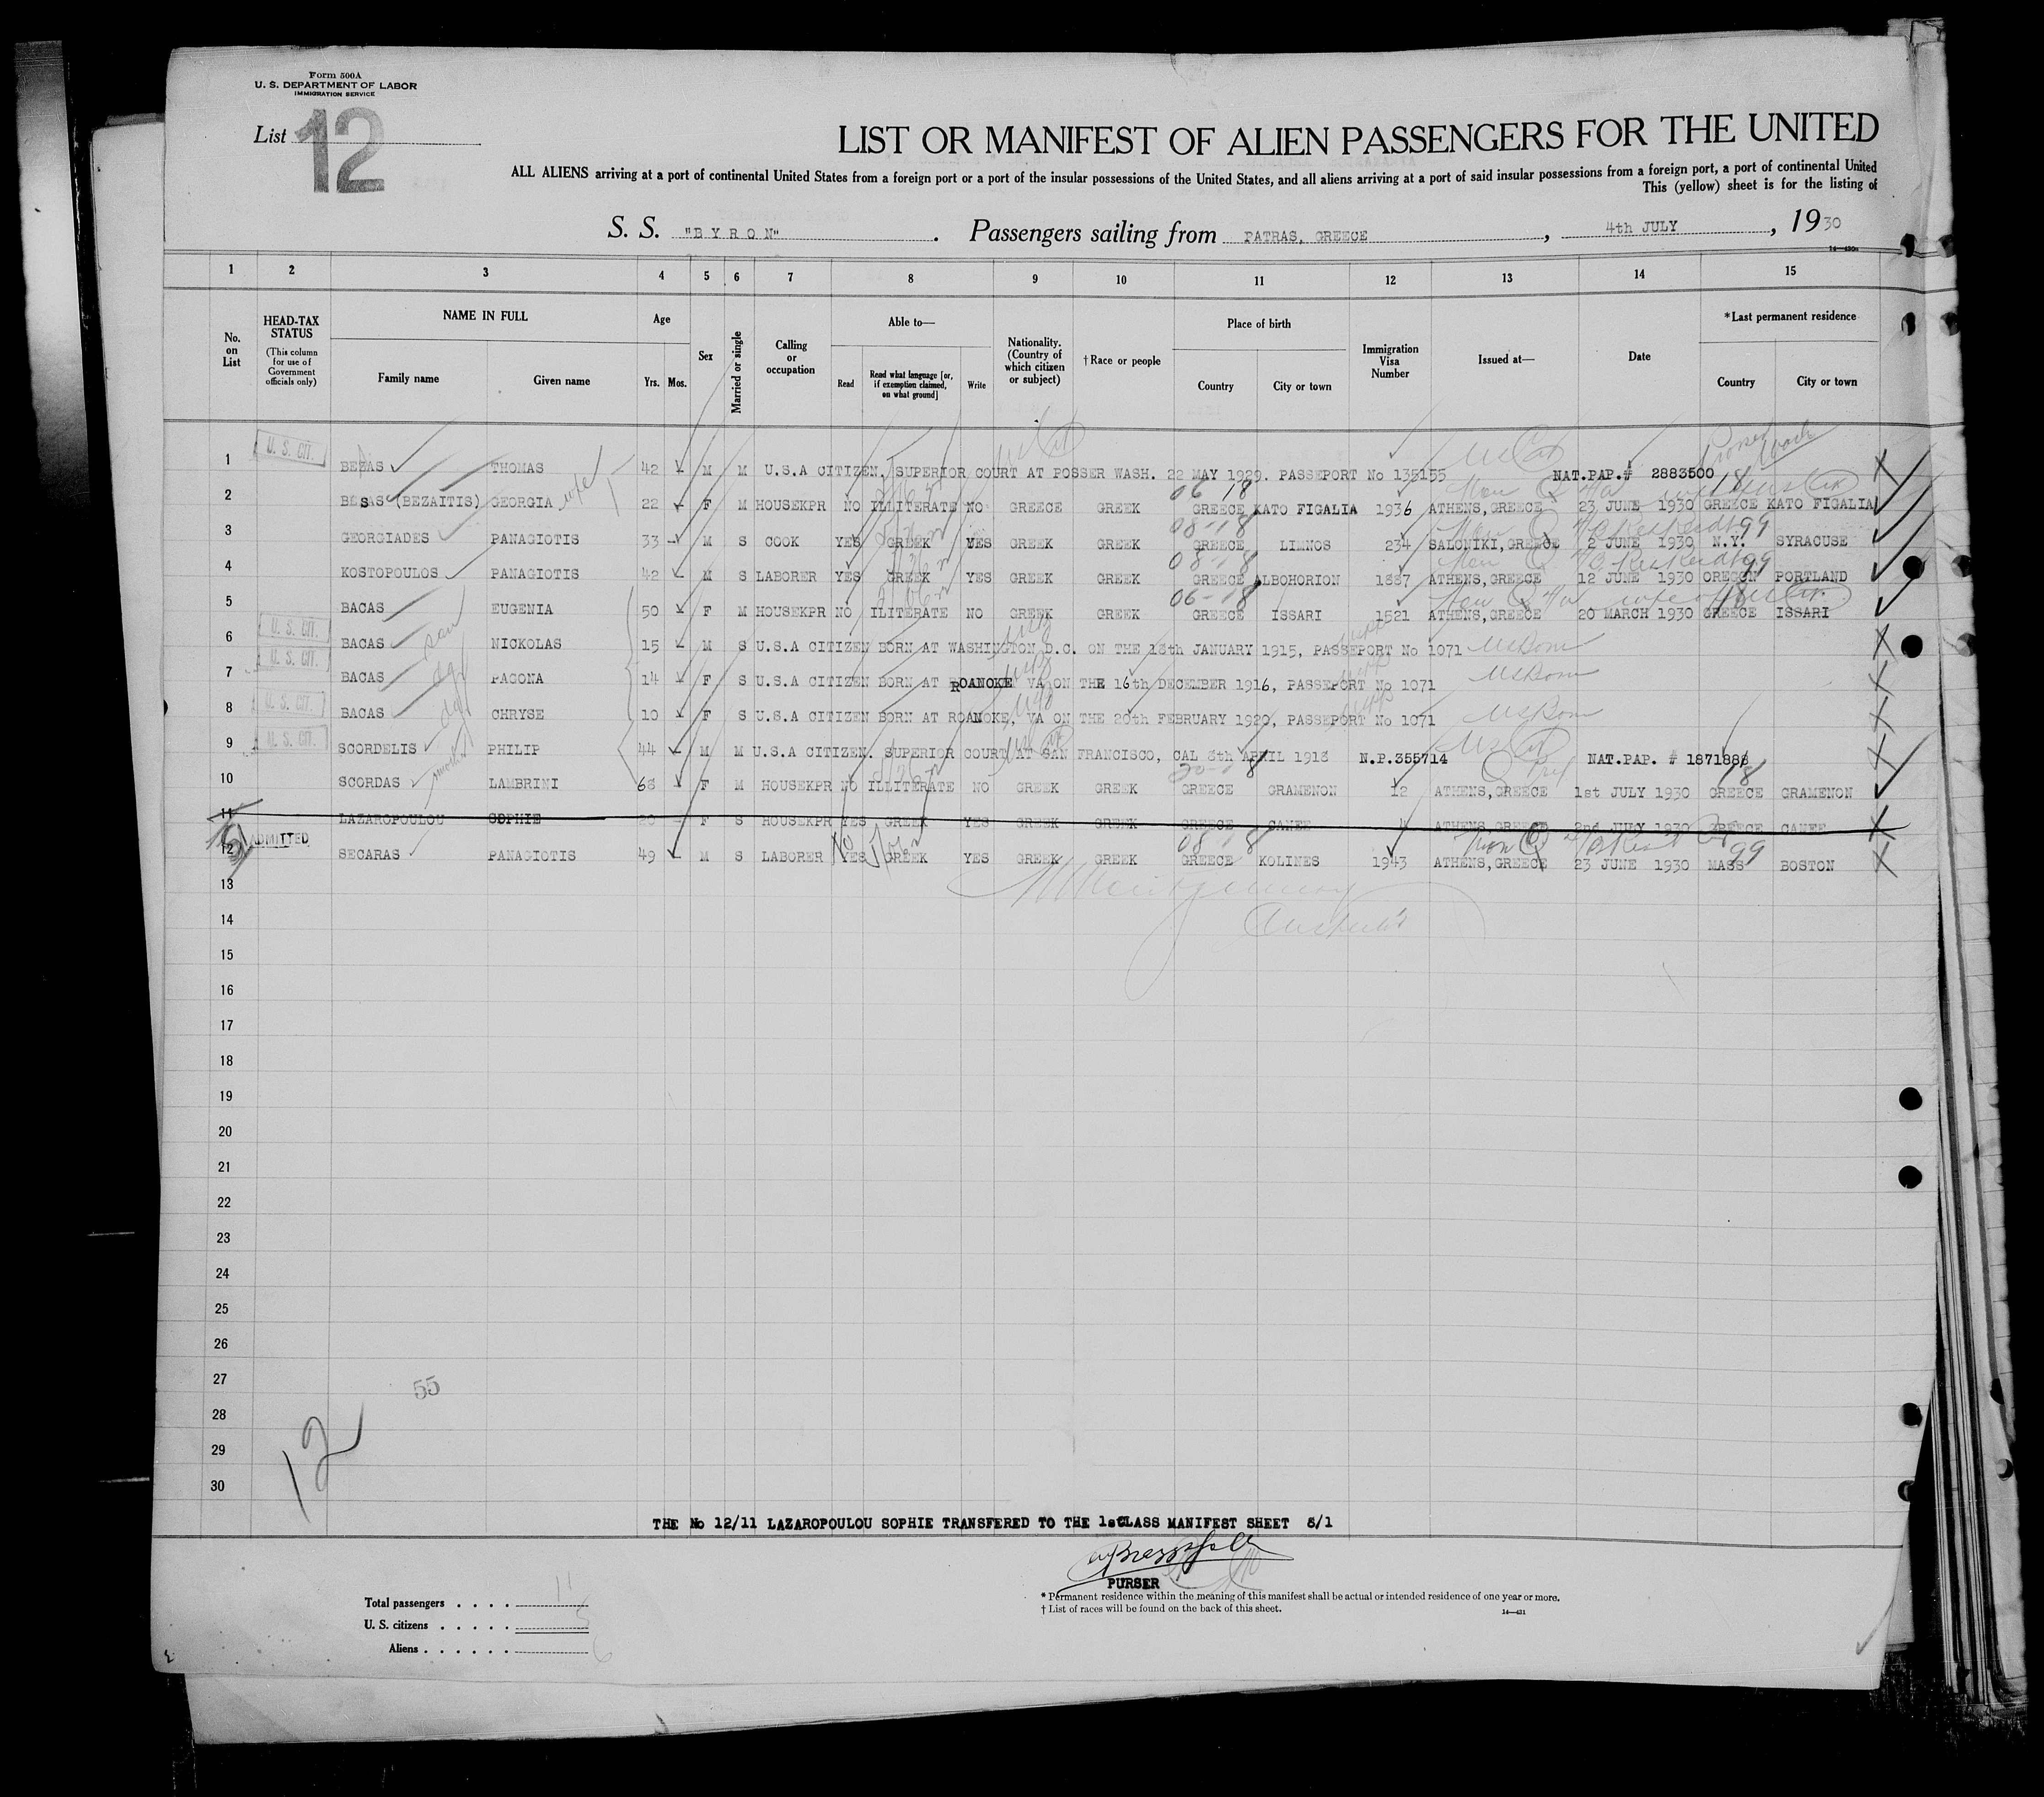 Form 500A
U. S. DEPARTMENT OF LABOR
IMMIGRATION SERVICE
List 12
LIST OR MANIFEST OF ALIEN PASSENGERS FOR THE UNITED
ALL ALIENS arriving at a port of continental United States from a foreign port or a port of the insular possessions of the United States, and all aliens arriving at a port of said insular possessions from a foreign port, a port of continental United
This (yellow) sheet is for the listing of
S. S. "BYRON". Passengers sailing from PATRAS, GREECE, 4th JULY, 1930
14—430a
1 2 3 4 5 6 7 8 9 10 11 12 13 14 15
No. on List
HEAD-TAX STATUS (This column for use of Government officials only)
NAME IN FULL Family name Given name
Age Yrs. Mos.
Sex
Married or single
Calling or occupation
Able to— Read Read what language [or, if exemption claimed, on what ground] Write
Nationality. (Country of which citizen or subject)
†Race or people
Place of birth Country City or town
Immigration Visa Number
Issued at—
Date
*Last permanent residence Country City or town
1 U. S. CIT. BEBAS THOMAS 42 M M U.S.A CITIZEN. SUPERIOR COURT AT POSSER WASH. 22 MAY 1929. PASSEPORT No 135155 NAT.PAP.# 2883500
2 BESAS (BEZAITIS) GEORGIA wife 22 F M HOUSEKPR NO ILLITERATE NO GREECE GREEK GREECE KATO FIGALIA 1936 ATHENS, GREECE 23 JUNE 1930 GREECE KATO FIGALIA
3 GEORGIADES PANAGIOTIS 33 M S COOK YES GREEK YES GREEK GREEK GREECE LIMNOS 234 SALONIKI, GREECE 2 JUNE 1930 N.Y. SYRACUSE
4 KOSTOPOULOS PANAGIOTIS 42 M S LABORER YES GREEK YES GREEK GREEK GREECE ALBOHORION 1887 ATHENS, GREECE 12 JUNE 1930 OREGON PORTLAND
5 BACAS EUGENIA 50 F M HOUSEKPR NO ILITERATE NO GREEK GREEK GREECE ISSARI 1521 ATHENS, GREECE 20 MARCH 1930 GREECE ISSARI
6 U. S. CIT. BACAS son NICKOLAS 15 M S U.S.A CITIZEN BORN AT WASHINGTON D.C. ON THE 18th JANUARY 1915, PASSEPORT No 1071 US Born
7 U. S. CIT. BACAS PAGONA 14 F S U.S.A CITIZEN BORN AT ROANOKE VA ON THE 16th DECEMBER 1916, PASSEPORT No 1071 US Born
8 U. S. CIT. BACAS CHRYSE 10 F S U.S.A CITIZEN BORN AT ROANOKE, VA ON THE 20th FEBRUARY 1920, PASSEPORT No 1071 US Born
9 U. S. CIT. SCORDELIS PHILIP 44 M M U.S.A CITIZEN. SUPERIOR COURT AT SAN FRANCISCO, CAL 8th APRIL 1918 N.P.355714 NAT.PAP. # 1871886
10 SCORDAS mother LAMBRINI 68 F M HOUSEKPR NO ILLITERATE NO GREEK GREEK GREECE GRAMENON 12 ATHENS, GREECE 1st JULY 1930 GREECE GRAMENON
11 LAZAROPOULOU SOPHIE 20 F S HOUSEKPR YES GREEK YES GREEK GREEK GREECE CANEE 4 ATHENS, GREECE 2nd JULY 1930 GREECE CANEE
12 ADMITTED SECARAS PANAGIOTIS 49 M S LABORER YES GREEK YES GREEK GREEK GREECE KOLINES 1943 ATHENS, GREECE 23 JUNE 1930 MASS BOSTON
13
14
15
16
17
18
19
20
21
22
23
24
25
26
27
55
28
29
12
30
THE No 12/11 LAZAROPOULOU SOPHIE TRANSFERED TO THE 1stCLASS MANIFEST SHEET 5/1
PURSER
Total passengers 11
U. S. citizens 5
Aliens 6
* Permanent residence within the meaning of this manifest shall be actual or intended residence of one year or more.
† List of races will be found on the back of this sheet.
14—431